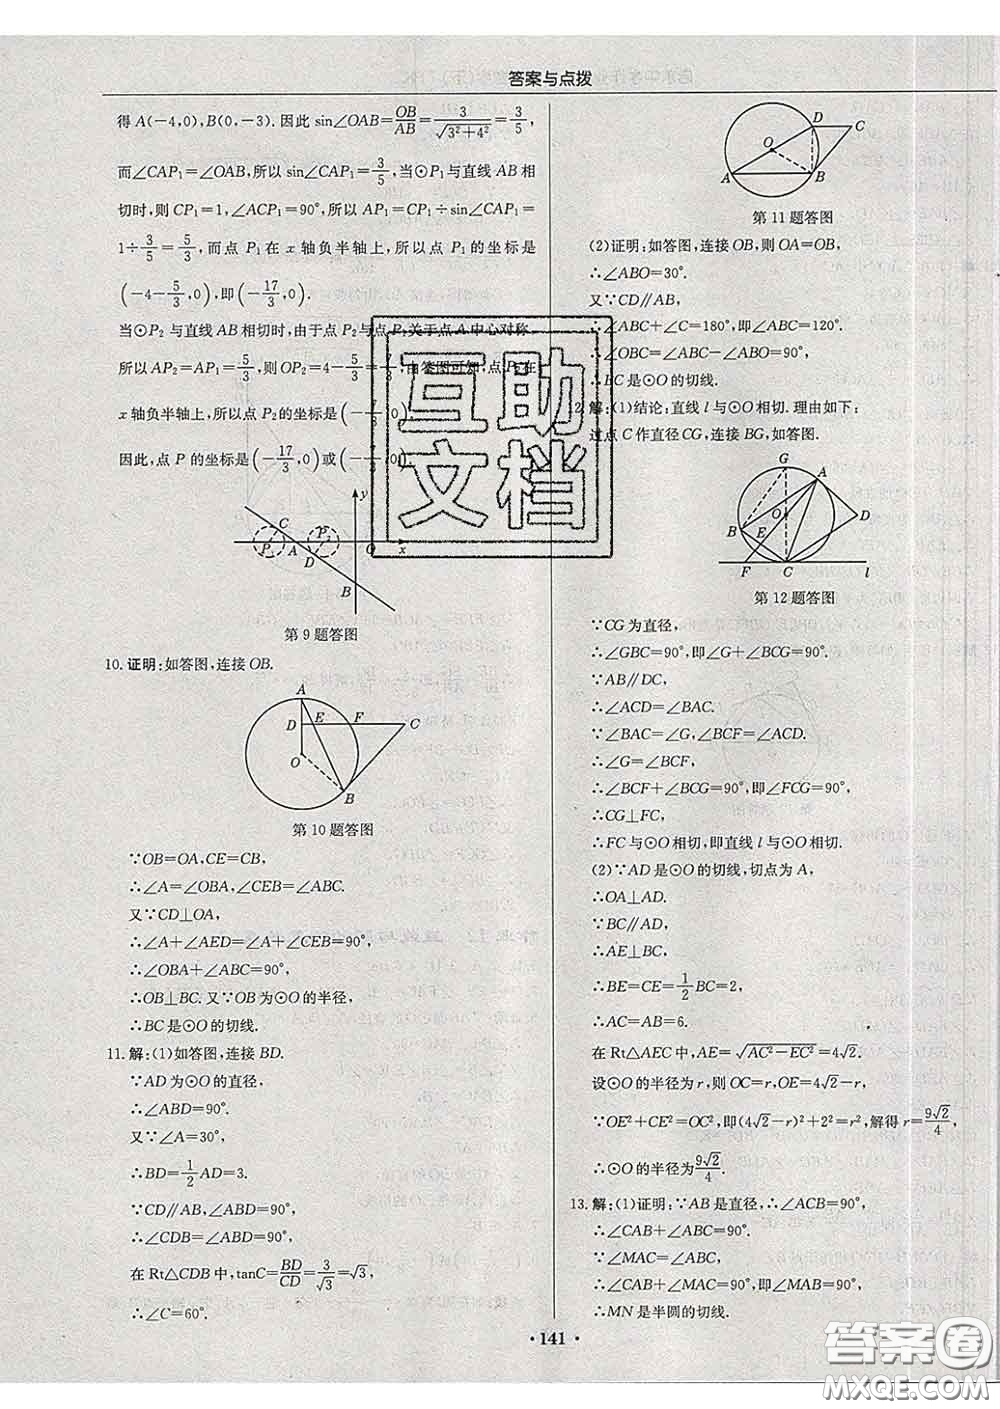 答案与点拨
得 A(-4,0),B(0,-3). 因此 sin∠OAB=OB/AB=3/√(3²+4²)=3/5,
而∠CAP₁=∠OAB,所以 sin∠CAP₁=3/5,当⊙P与直线 AB 相
切时,则 CP₁=1,∠ACP₁=90°,所以 AP₁=CP₁÷sin∠CAP₁=
1÷3/5=5/3,而点 P₁在 x 轴负半轴上,所以点 P₁ 的坐标是
(-4-5/3,0),即(-17/3,0).
当⊙P₂ 与直线 AB 相切时,由于点 P₂与点 P₁关于点 A 中心对称,
所以 AP₂=AP₁=5/3,所以 OP₂=4-5/3=7/3,由答图可知,点 P₂在
x 轴负半轴上,所以点 P₂的坐标是(-7/3,0).
因此,点 P 的坐标是(-17/3,0)或(-7/3,0).
y
C
P₁
A
P₂
D
O
x
B
第 9 题答图
10. 证明:如答图,连接 OB.
A
D
E
F
C
O
B
第 10 题答图
∵OB=OA,CE=CB,
∴∠A=∠OBA,∠CEB=∠ABC.
又∵CD⊥OA,
∴∠A+∠AED=∠A+∠CEB=90°,
∴∠OBA+∠ABC=90°,
∴OB⊥BC. 又∵OB 为⊙O 的半径,
∴BC 是⊙O 的切线.
11. 解:(1)如答图,连接 BD.
∵AD 为⊙O 的直径,
∴∠ABD=90°.
又∵∠A=30°,
∴BD=1/2AD=3.
∵CD∥AB,∠ABD=90°,
∴∠CDB=∠ABD=90°.
在 Rt△CDB 中,tanC=BD/CD=3/√3=√3,
∴∠C=60°.
D
C
O
A
B
第 11 题答图
(2)证明:如答图,连接 OB,则 OA=OB,
∴∠ABO=30°.
又∵CD∥AB,
∴∠ABC+∠C=180°,即∠ABC=120°.
∴∠OBC=∠ABC-∠ABO=90°,
∴BC 是⊙O 的切线.
12. 解:(1)结论:直线 l 与⊙O 相切. 理由如下:
过点 C 作直径 CG,连接 BG,如答图.
G
A
O
D
B
E
F
C
l
第 12 题答图
∵CG 为直径,
∴∠GBC=90°,即∠G+∠BCG=90°,
∵AB∥DC,
∴∠ACD=∠BAC.
∵∠BAC=∠G,∠BCF=∠ACD.
∴∠G=∠BCF,
∴∠BCF+∠BCG=90°,即∠FCG=90°,
∴CG⊥FC,
∴FC 与⊙O 相切,即直线 l 与⊙O 相切.
(2)∵AD 是⊙O 的切线,切点为 A,
∴OA⊥AD.
∵BC∥AD,
∴AE⊥BC,
∴BE=CE=1/2BC=2,
∴AC=AB=6.
在 Rt△AEC 中,AE=√(AC²-EC²)=4√2.
设⊙O 的半径为 r,则 OC=r,OE=4√2-r,
∵OE²+CE²=OC²,即(4√2-r)²+2²=r²,解得 r=9√2/4,
∴⊙O 的半径为9√2/4.
13. 解:(1)证明:∵AB 是直径,∴∠ACB=90°,
∴∠CAB+∠ABC=90°.
∵∠MAC=∠ABC,
∴∠CAB+∠MAC=90°,即∠MAB=90°,
∴MN 是半圆的切线.
• 141 •
互助文档
答案圈
MXQE.COM